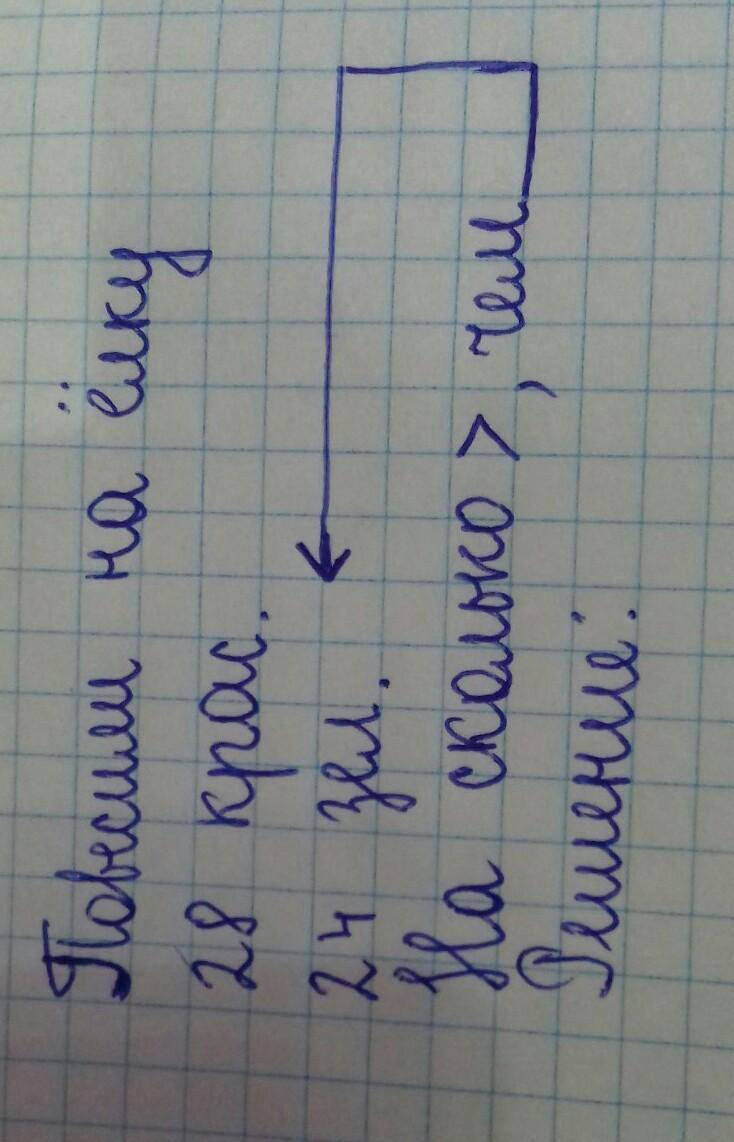 Повесили на ёлку
28 крас.
24 зел.
На сколько >, чем
Решение: